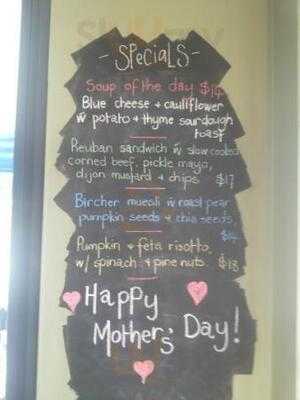 - SPeCiaLS -
Soup of the day $14
Blue cheese + cauliflower
w potato + thyme sourdough
toast
Reuban sandwich w slow cooked
corned beef, pickle mayo,
dijon mustard + chips $17
Bircher muesli w roast pear
pumpkin seeds + chia seeds,
Pumpkin + feta risotto
w/ spinach + pine nuts $18
Happy
Mother's Day!